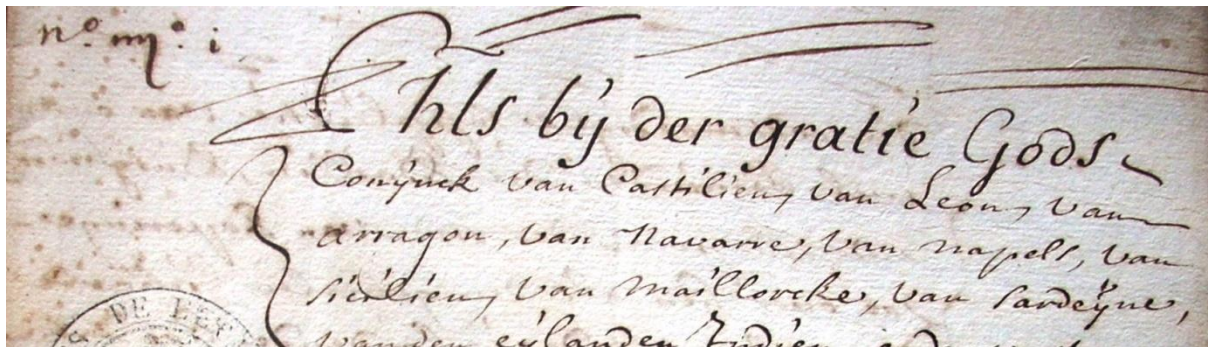 nº. iiijº. i
Chls bij der gratie Gods
Conÿnck van Castilien, van Leon, van
arragon, van Navarre, van napels, van
sicilien, van maillorcke, van sardeÿne,
van den eÿlanden Indien
DE L'ET